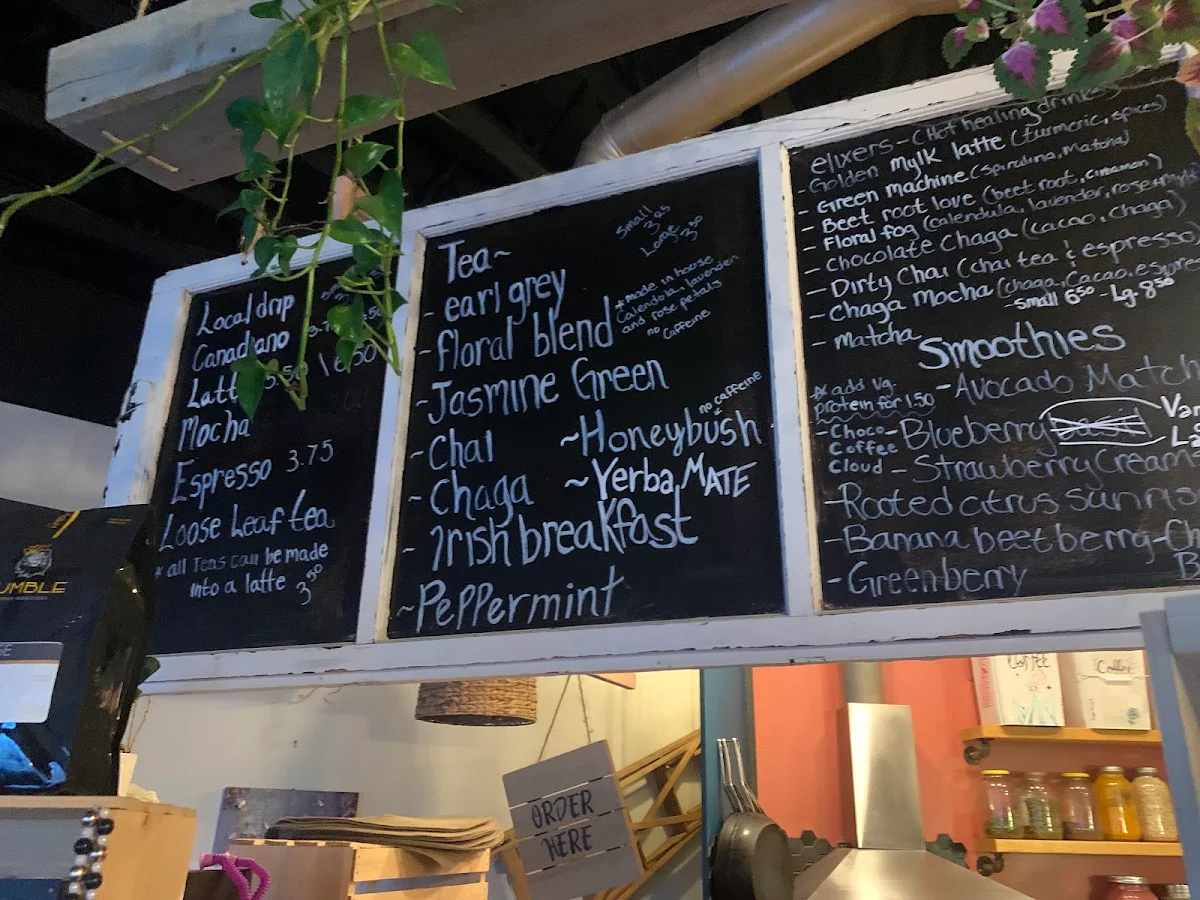 Local drip
Canadiano 3.
Latte 5.50 | 6.50
Mocha
Espresso 3.75
Loose Leaf tea
* all Teas can be made
into a latte 3.50
Tea~
Small
3.25
Large
3.50
- earl grey
- floral blend
* made in house
Calendola, lavenden
and rose petals
no caffeine
- Jasmine Green
- Chai
no caffeine
~Honeybush
- Chaga
~Yerba MATE
- Irish breakfast
~Peppermint
elixers-(Hot healing drinks
- Golden mylk latte (turmeric, spices)
- Green machine (Spirulina, Matcha)
- Beet root love (beet root, cinnamon)
- Floral fog (Calendula, lavender, rose+
- Chocolate Chaga (cacao, Chaga)
- Dirty Chai (chai tea & espresso)
- Chaga Mocha (chaga, Cacao, espres
- Small 6.50 - Lg. 8.50
- Matcha
Smoothies
* add Vg.
protein for 1.50
- Avocado Match
- Choco-
Coffee
Cloud
- Blueberry
Va
- Strawberry Creams
- Rooted citrus sunris
- Banana beet berry - Ch
- Greenberry
B
UMBLE
SE
ORDER
HERE
Coffee
Coffee